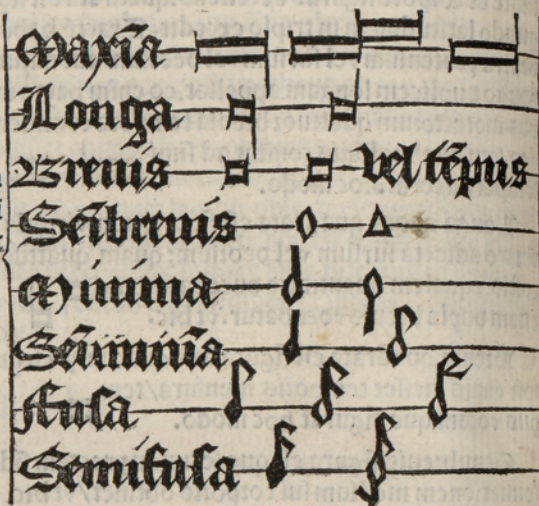 Maxīa
Longa
Breuis vel tēpus
Sēibreuis
Minima
Sēiminīa
Fusa
Semifusa